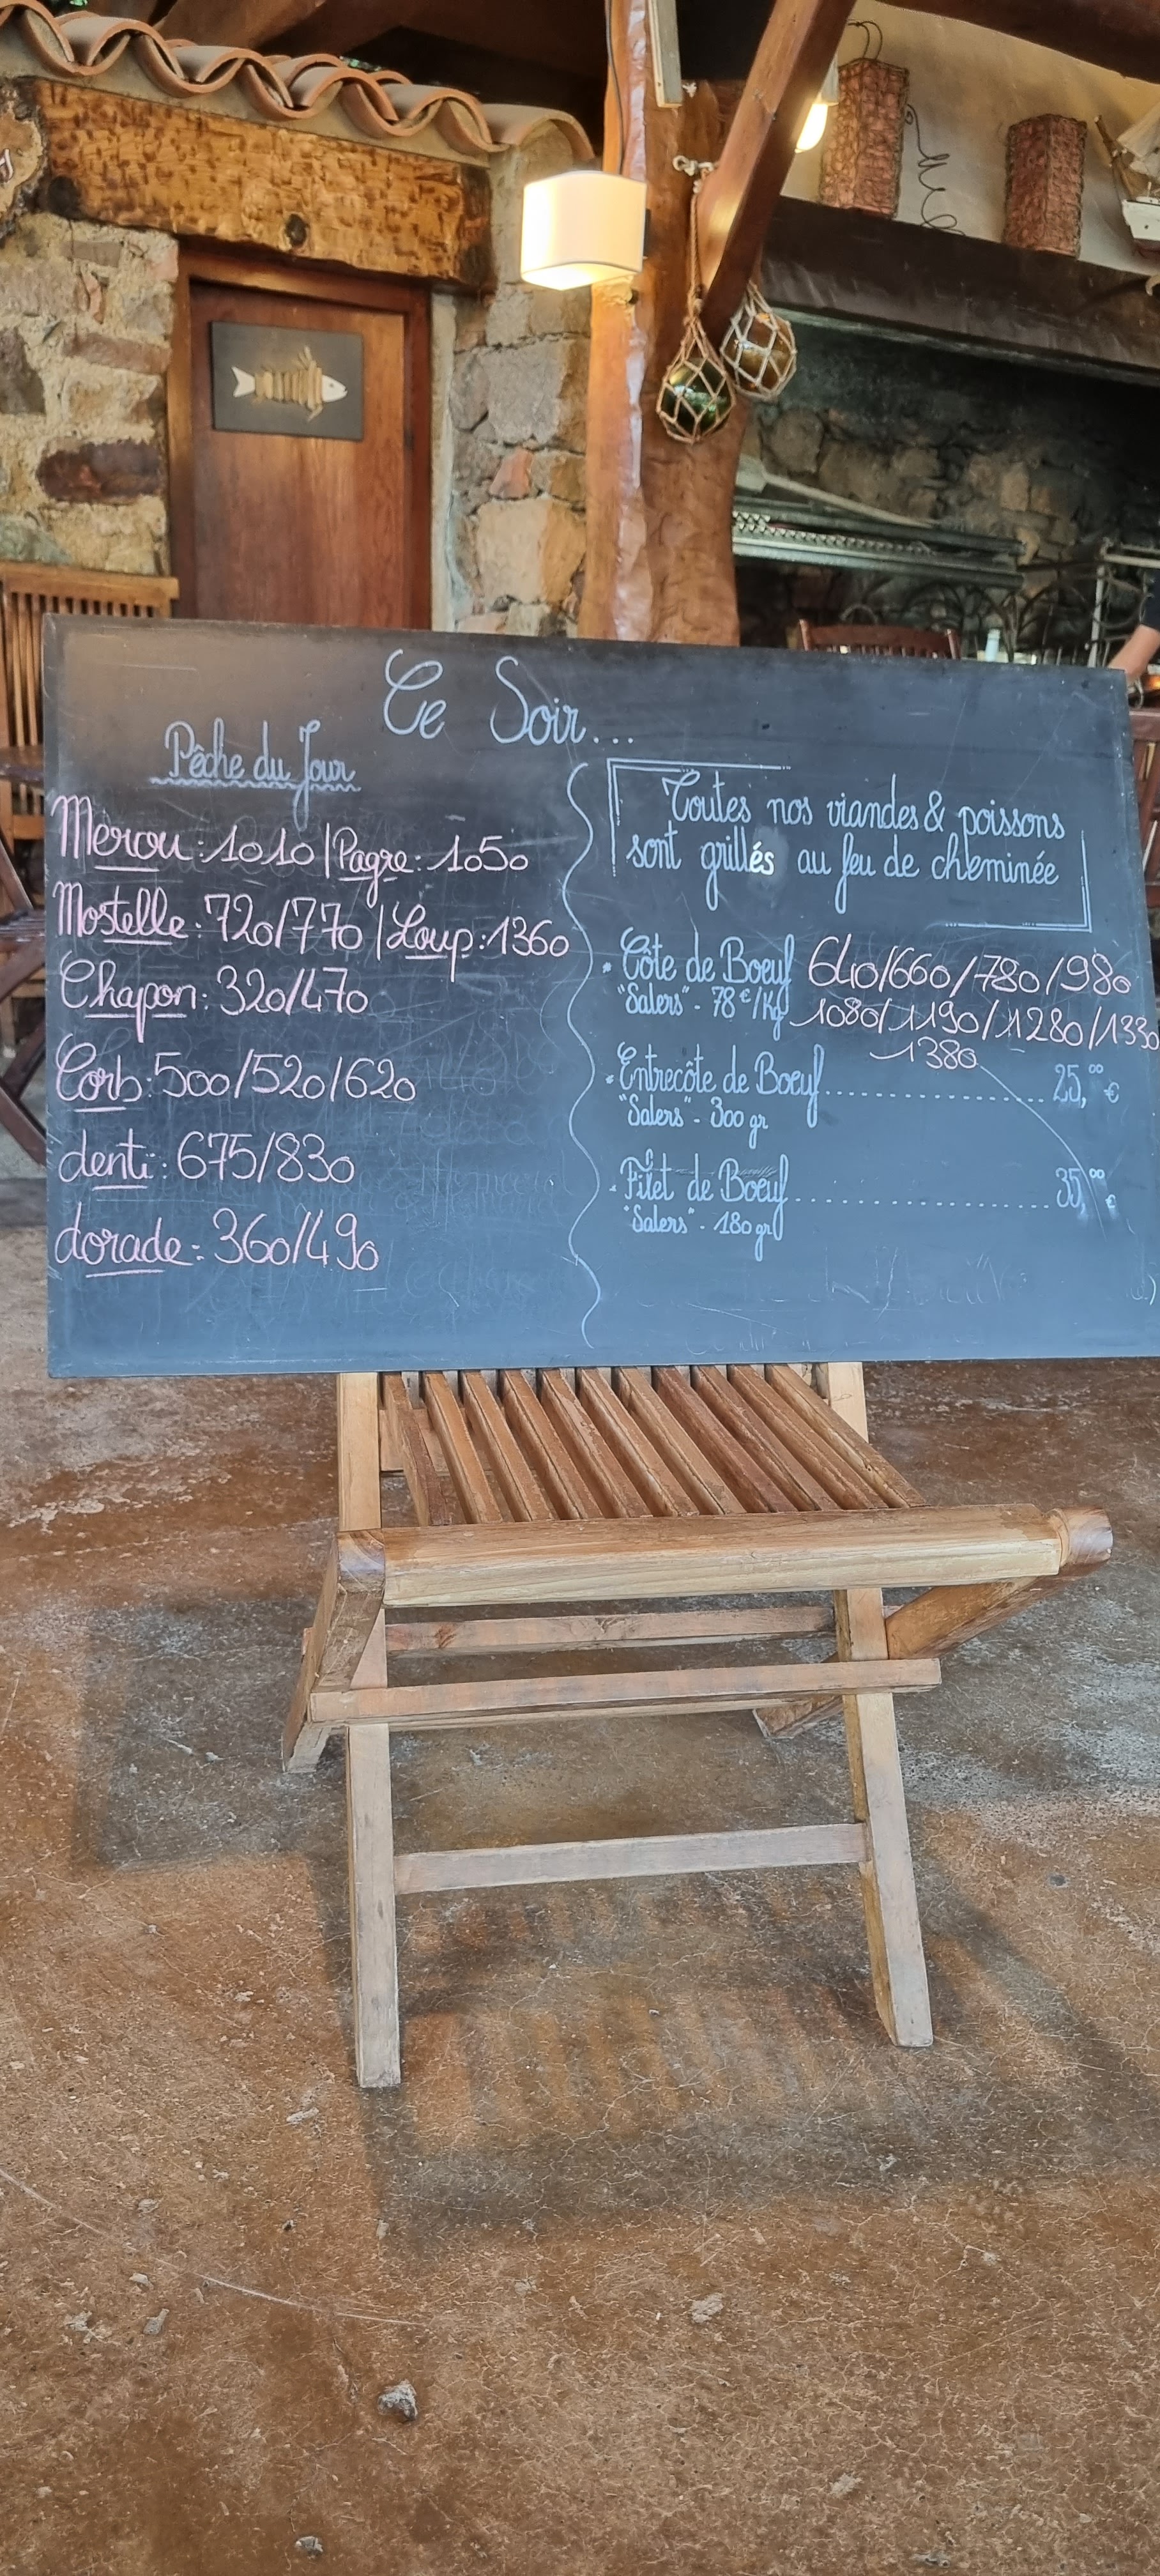 Ce Soir...
Pêche du Jour
Merou: 1010 | Pagre: 1050
Mostelle: 720/770 | Loup: 1360
Chapon: 320/470
Corb: 500/520/620
denti: 675/830
dorade: 360/490
Toutes nos viandes & poissons
sont grillés au feu de cheminée
• Côte de Boeuf 640/660/780/980
"Salers" - 78€/Kg 1080/1190/1280/1330
1380
• Entrecôte de Boeuf.......................... 25,00 €
"Salers" - 300 gr
• Filet de Boeuf.............................. 35,00 €
"Salers" - 180 gr